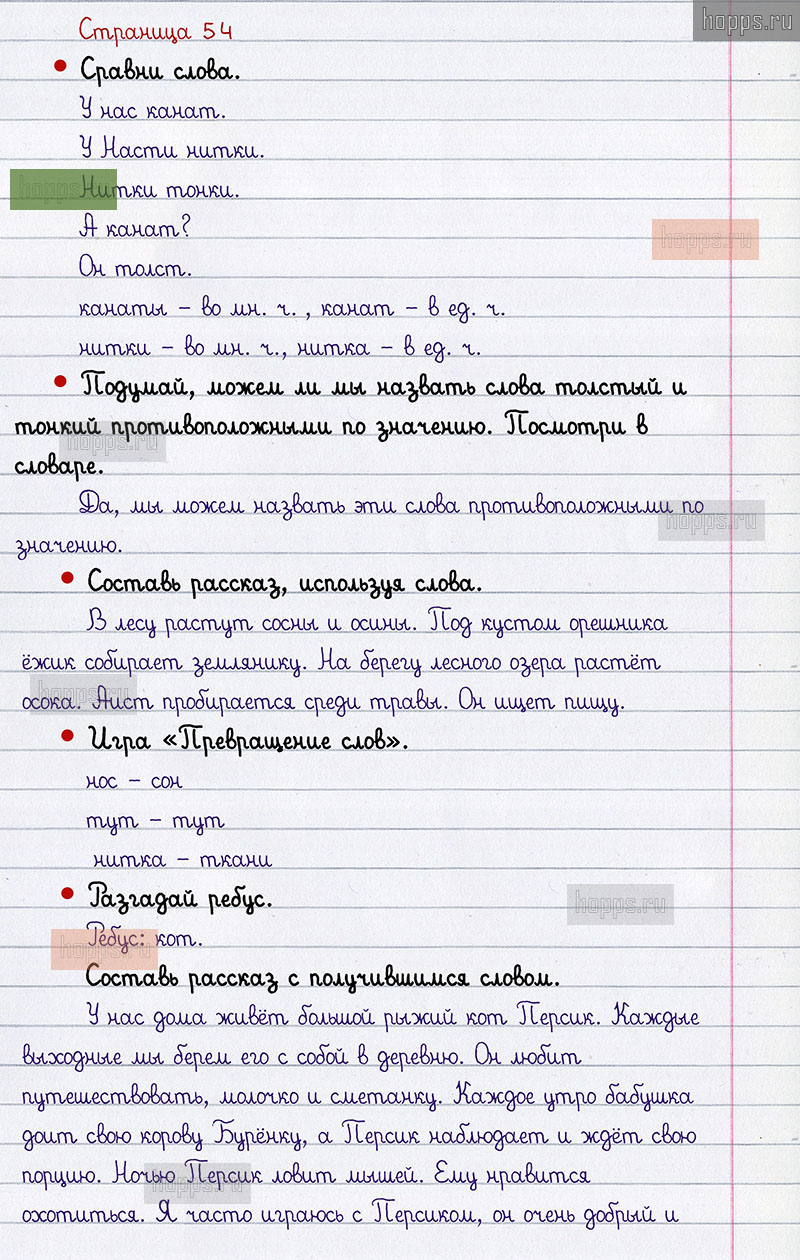 hopps.ru
Страница 54
• Сравни слова.
У нас канат.
У Насти нитки.
hopps.ru
Нитки тонки.
А канат?
hopps.ru
Он толст.
канаты – во мн. ч. , канат – в ед. ч.
нитки – во мн. ч., нитка – в ед. ч.
• Подумай, можем ли мы назвать слова толстый и
тонкий противоположными по значению. Посмотри в
hopps.ru
словаре.
Да, мы можем назвать эти слова противоположными по
hopps.ru
значению.
• Составь рассказ, используя слова.
В лесу растут сосны и осины. Под кустом орешника
ёжик собирает землянику. На берегу лесного озера растёт
hopps.ru
осока. Аист пробирается среди травы. Он ищет пищу.
• Игра «Превращение слов».
нос – сон
тут – тут
нитка – ткани
• Разгадай ребус.
hopps.ru
Ребус: кот.
hopps.ru
Составь рассказ с получившимся словом.
У нас дома живёт большой рыжий кот Персик. Каждые
выходные мы берем его с собой в деревню. Он любит
путешествовать, молочко и сметанку. Каждое утро бабушка
доит свою корову Бурёнку, а Персик наблюдает и ждёт свою
порцию. Ночью Персик ловит мышей. Ему нравится
hopps.ru
охотиться. Я часто играюсь с Персиком, он очень добрый и